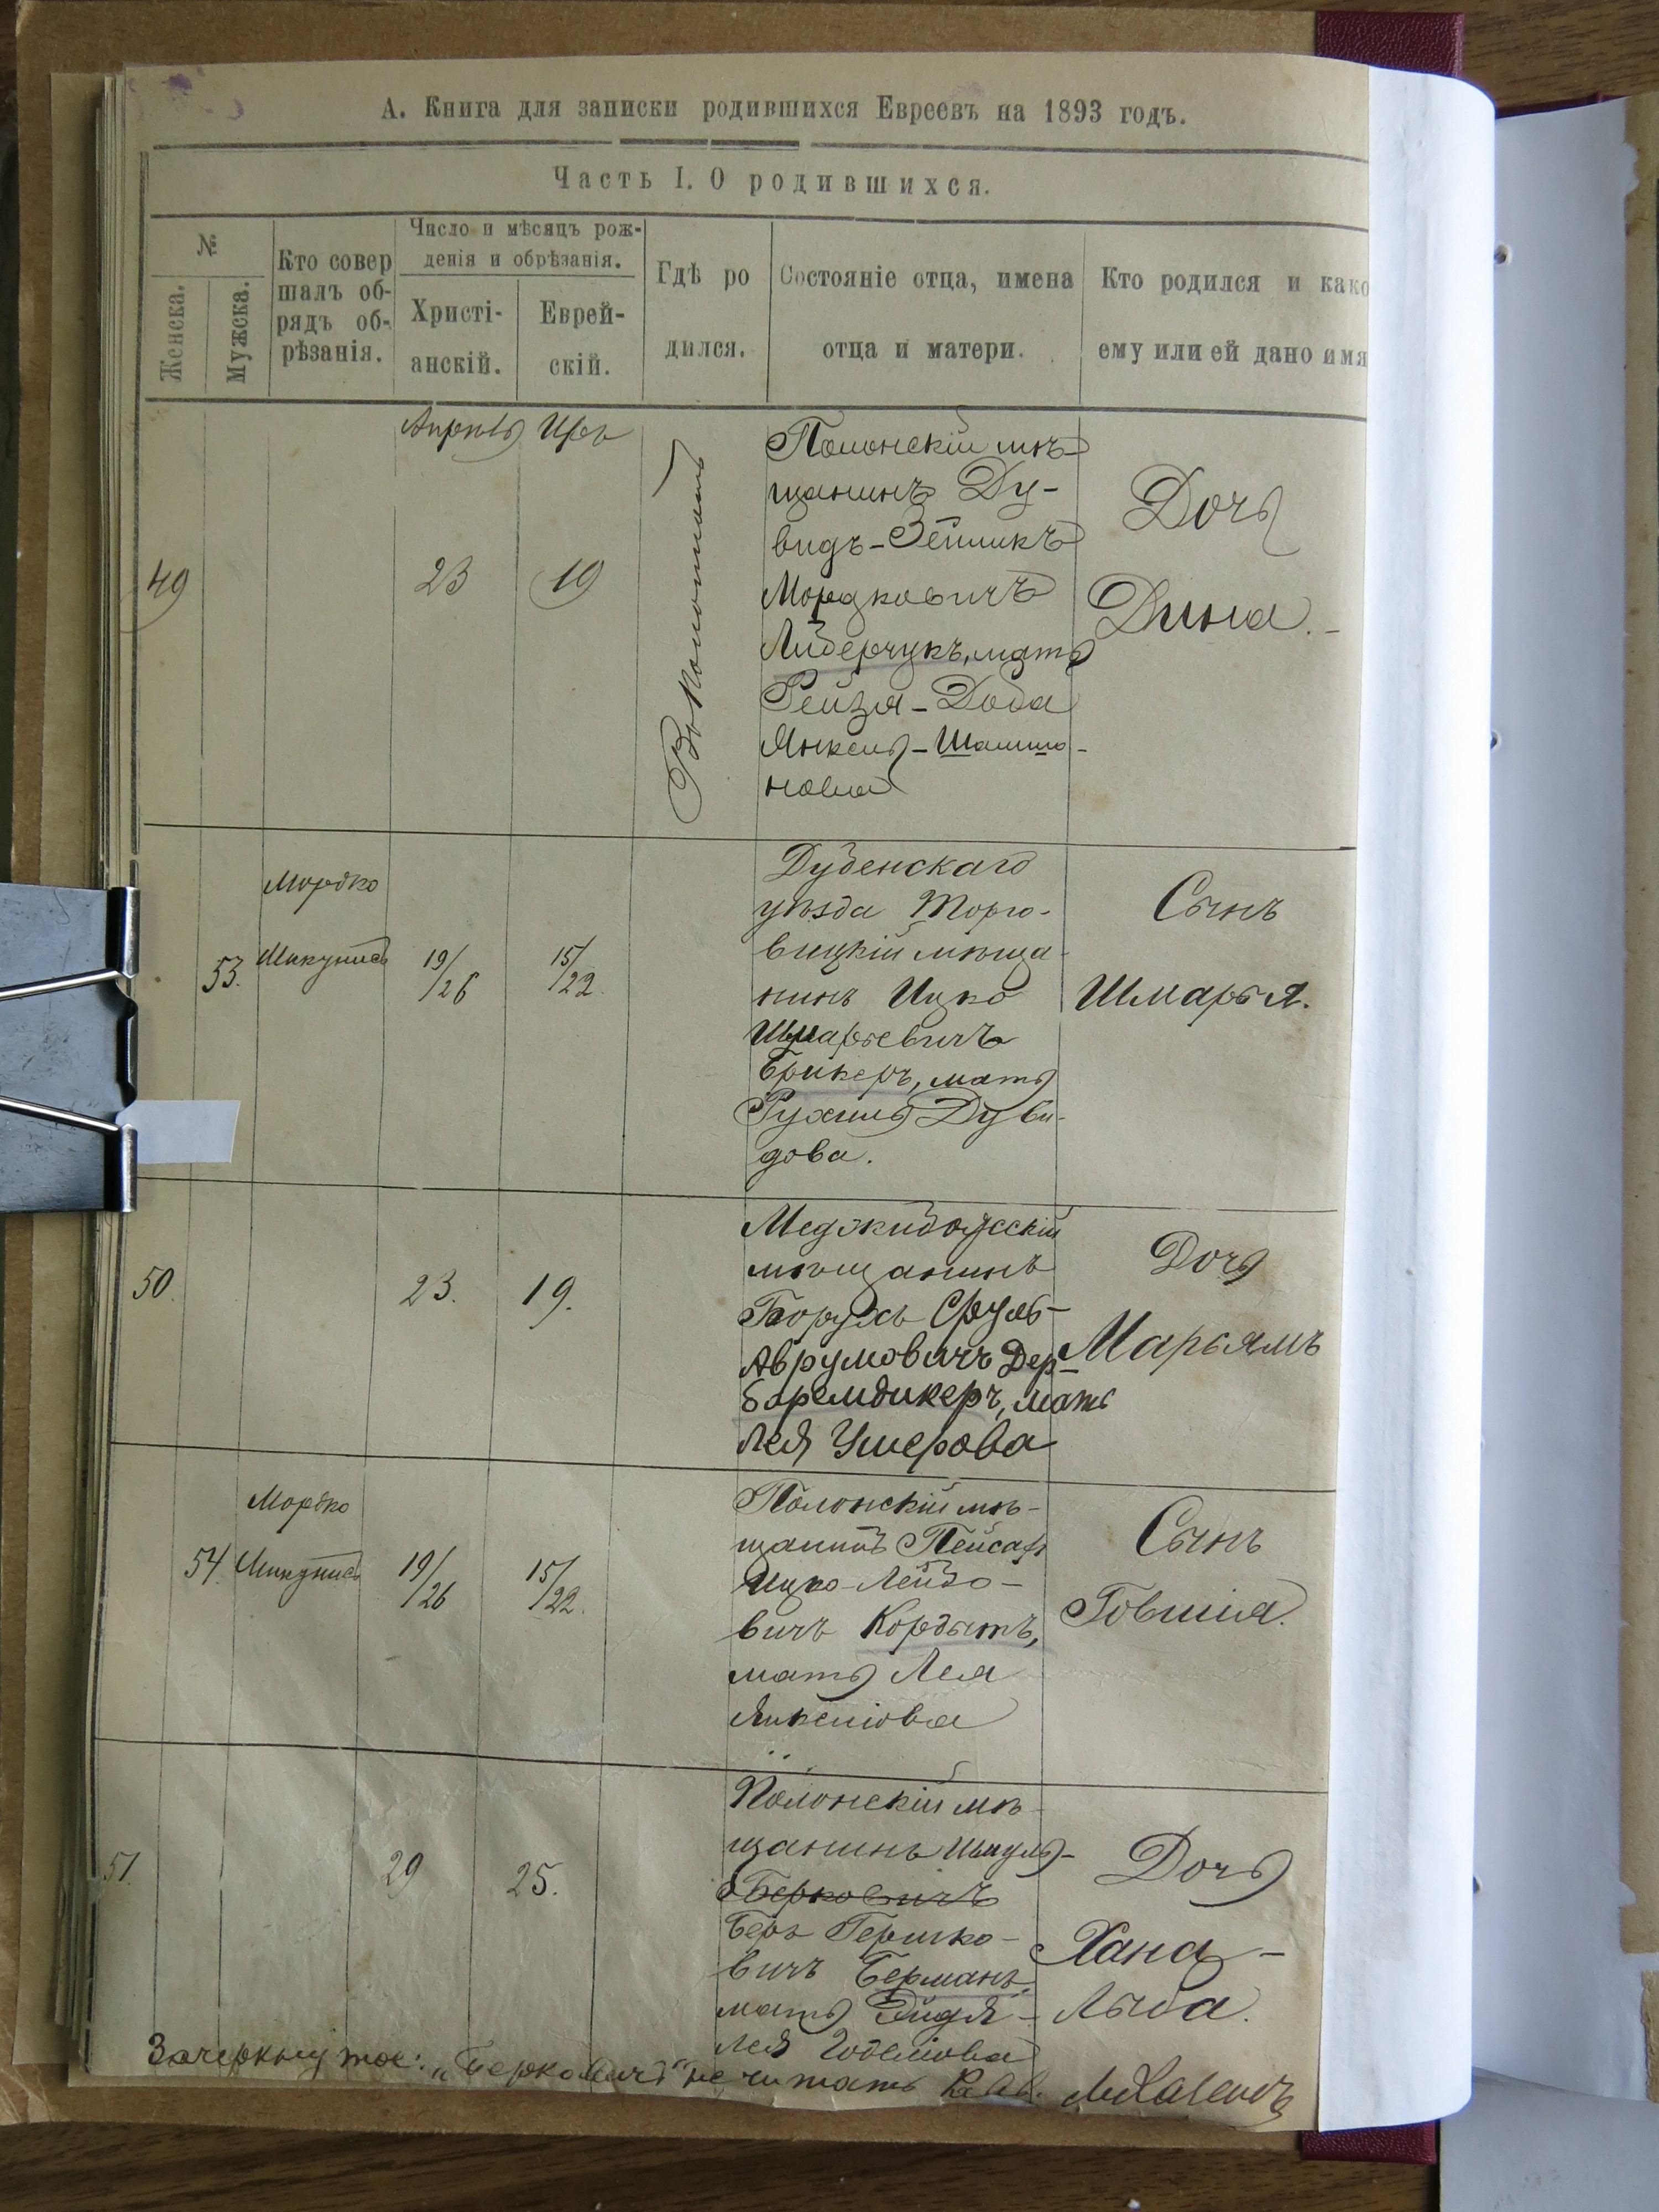 А. Книга для записки родившихся Евреевъ на 1893 годъ.
Часть I. О родившихся.
№
Женска.
Мужска.
Кто совер
шалъ об-
рядъ об-
рѣзанія.
Число и мѣсяцъ рож-
денія и обрѣзанія.
Христі-
анскій.
Еврей-
скій.
Гдѣ ро
дился.
Состояніе отца, имена
отца и матери.
Кто родился и како
ему или ей дано имя
Апрель Ира
49
23
19
Полонскій мѣ-
щанинъ Ду-
видъ-Зейликъ
Мордковичъ
Лидерчукъ, мать
Рейзя-Доба
Янкель-Шлиомо-
нова
Дочь
Дина.-
53.
Мордко
Микунисъ
19/26
15/22.
Дубенскаго
уѣзда Торго-
вицкій мѣща-
нинъ Ицко
Шмарьевичъ
Брикеръ, мать
Рухиль Дуви-
дова.
Сынъ
Шмарья.
50.
23.
19.
Меджибожскій
мѣщанинъ
Борухъ Сруль-
Аврумовичъ Дер-
баремдикеръ, мать
Лея Ушерова
Дочь
Марьямъ
54.
Мордко
Микунисъ
19/26
15/22.
Полонскій мѣ-
щанинъ Пейсах
Ицко-Лейзо-
вичъ Кордытъ,
мать Лея
Янкелiова
Сынъ
Говшия.
51.
29
25.
Полонскій мѣ-
щанинъ Шмуль-
Берковичъ
Беръ Гершко-
вичъ Берманъ,
мать Эйдя-
Лея Годелiова
Дочь
Хана-
Лыба.
Зачеркнутое: „Берковичъ" не читать